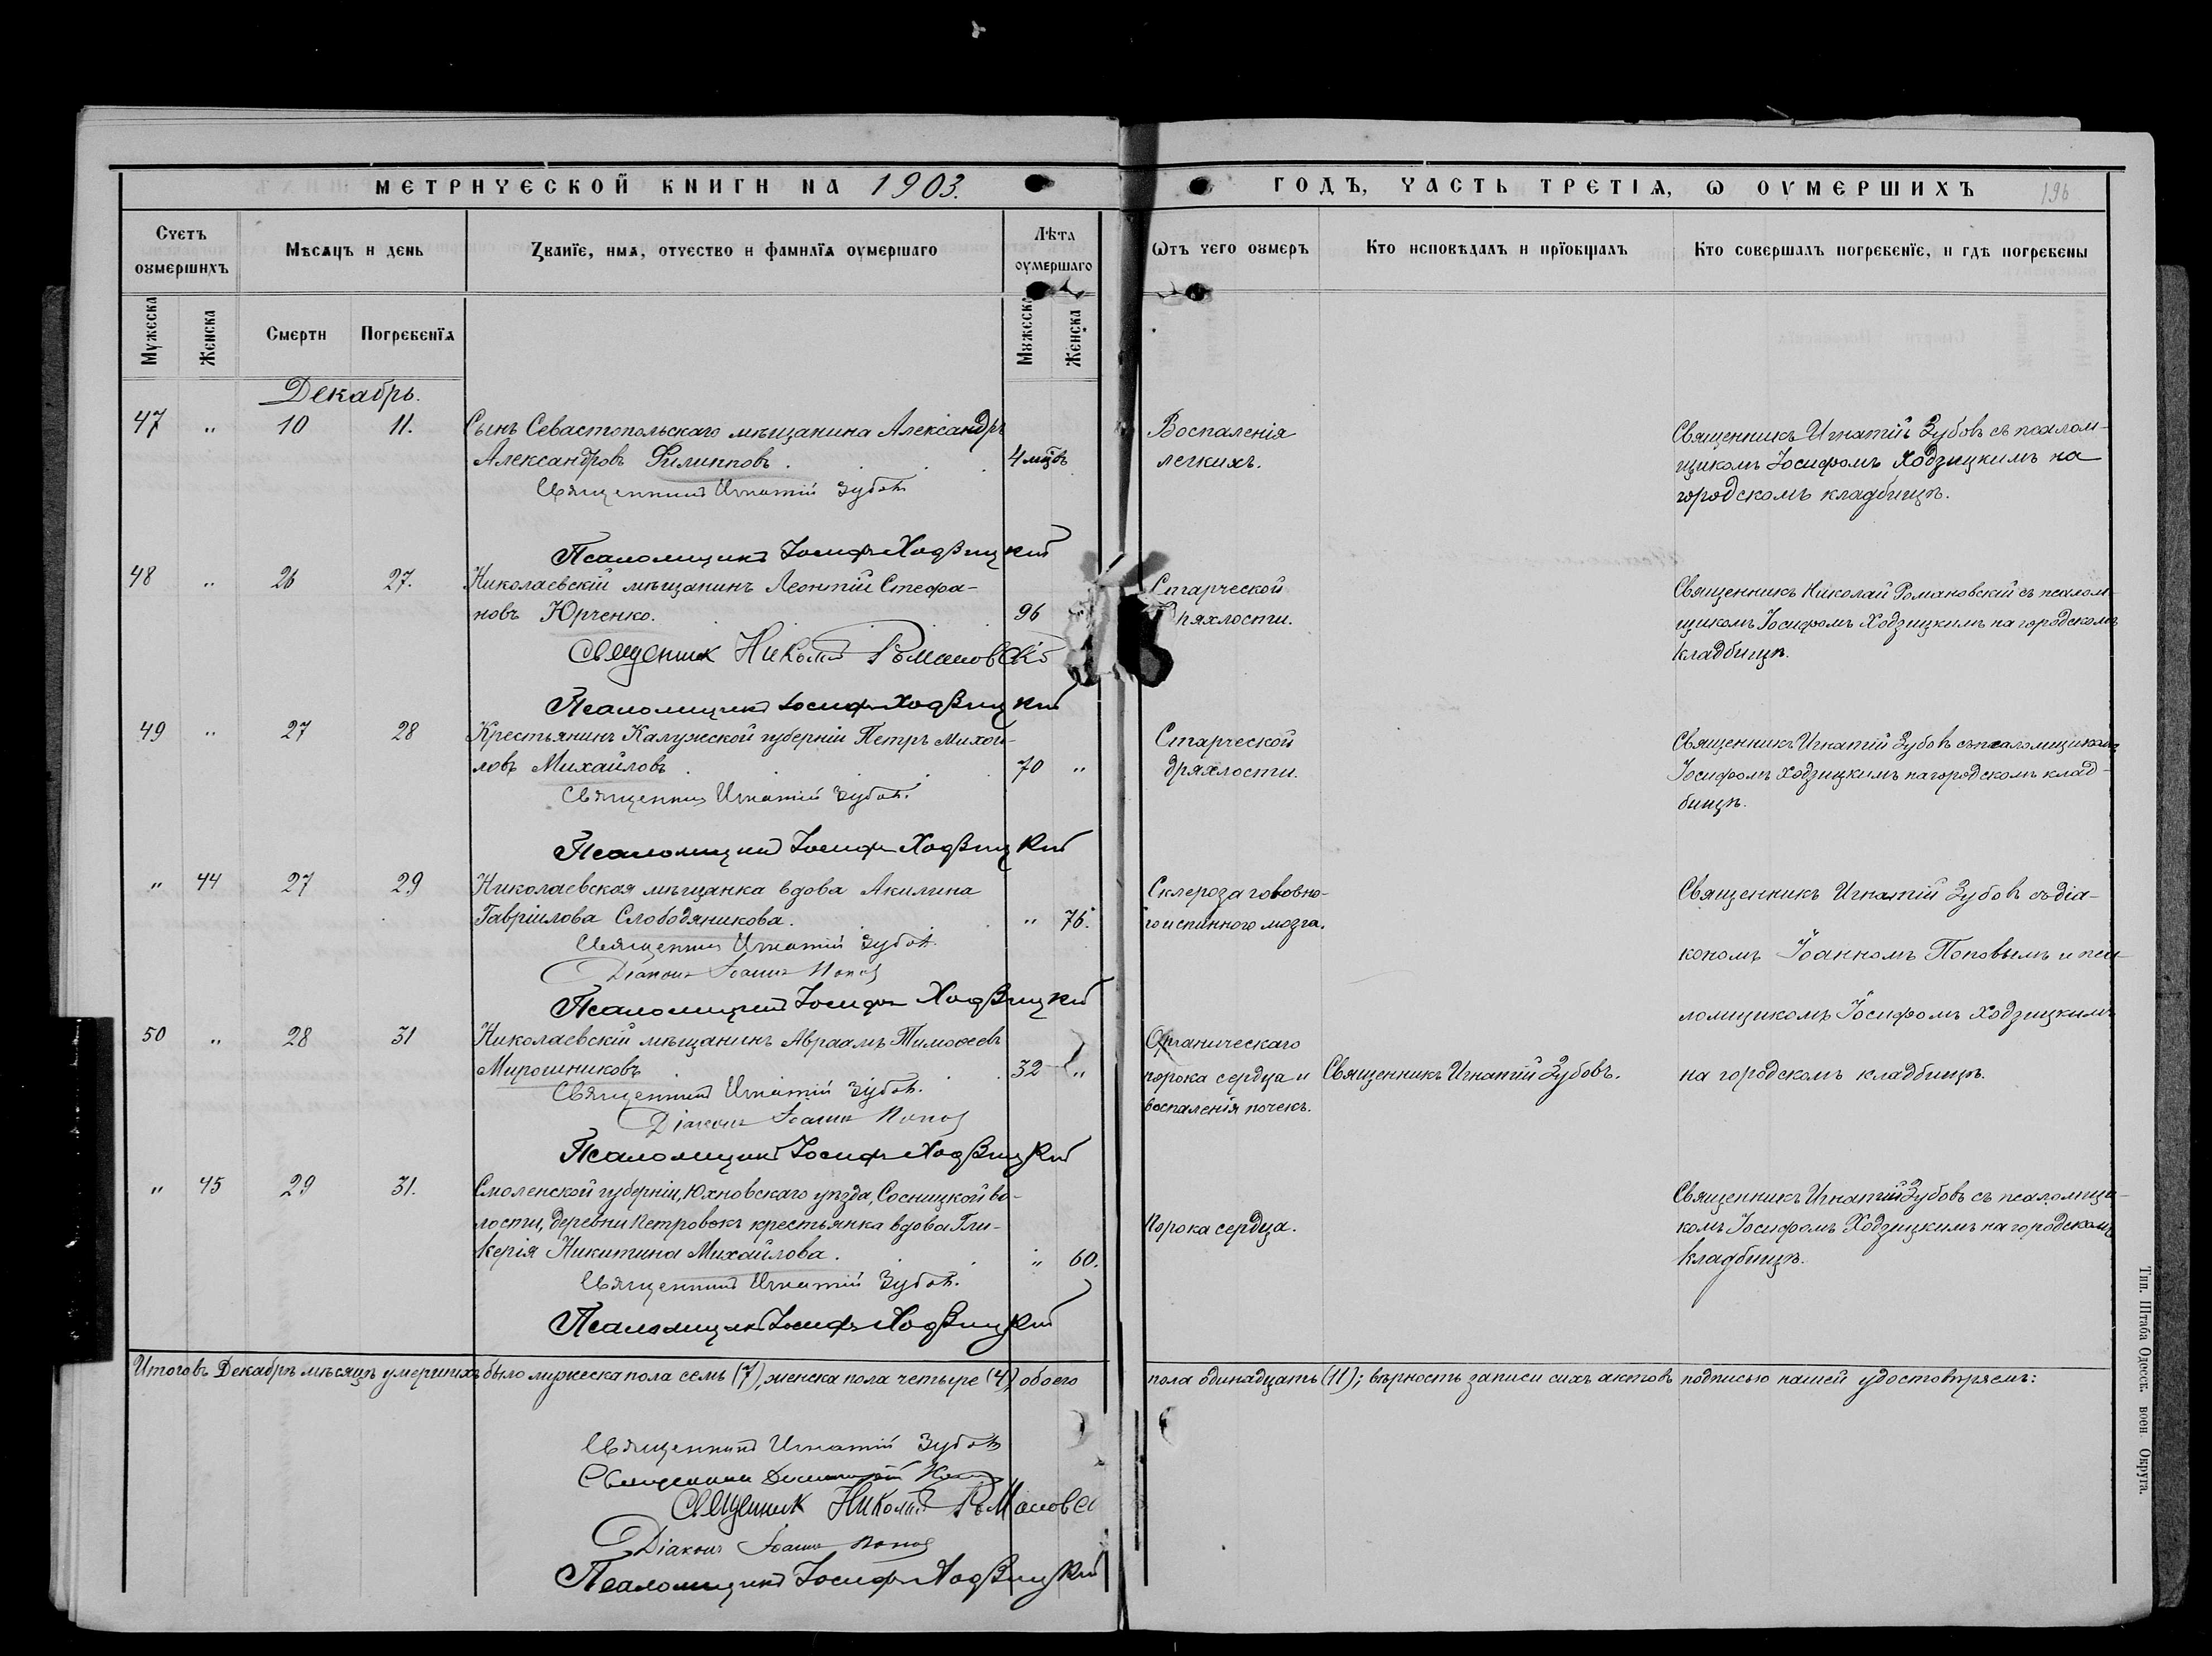 МЕТРИЧЕСКОЙ КНИГИ НА 1903.
ГОДЪ, ЧАСТЬ ТРЕТІѦ, Ѡ ОУМЕРШИХЪ
196
Счетъ оумершихъ
Мѣсяцъ и день
Званїе, имѧ, отчество и фамилїѧ оумершаго
Лѣта оумершаго
Ѿтъ чего оумеръ
Кто исповѣдалъ и прїобщалъ
Кто совершалъ погребенїе, и гдѣ погребены
Мужеска
Женска
Смерти
Погребенїѧ
Мужеска
Женска
Декабрь.
47 " 10 11. Сынъ Севастопольскаго мѣщанина Александръ
Александровъ Филипповъ. 4 мцъ
Священникъ Игнатій Зубовъ
Псаломщикъ Іосифъ Ходзицкій
Воспаленія
легкихъ.
Священникъ Игнатій Зубовъ съ псалом-
щикомъ Іосифомъ Ходзицкимъ на
городскомъ кладбищѣ.
48 " 26 27. Николаевскій мѣщанинъ Леонтій Стефа-
новъ Юрченко. 96
Священник Николай Романовскій
Псаломщикъ Іосифъ Ходзицкій
Старческой
дряхлости.
Священникъ Николай Романовскій съ псалом-
щикомъ Іосифомъ Ходзицкимъ на городскомъ
кладбищѣ.
49 " 27 28 Крестьянинъ Калужской губерніи Петръ Михай-
ловъ Михайловъ. 70 "
Священникъ Игнатій Зубовъ.
Псаломщикъ Іосифъ Ходзицкій
Старческой
дряхлости.
Священникъ Игнатій Зубовъ съ псаломщикомъ
Іосифомъ Ходзицкимъ на городскомъ клад-
бищѣ.
" 44 27 29 Николаевская мѣщанка вдова Акилина
Гавріилова Слободяникова. " 76.
Священникъ Игнатій Зубовъ.
Діаконъ Іоаннъ Поповъ
Псаломщикъ Іосифъ Ходзицкій
Склероза головно-
го и спинного мозга.
Священникъ Игнатій Зубовъ съ діа-
кономъ Іоанномъ Поповымъ и пса-
ломщикомъ Іосифомъ Ходзицкимъ
50 " 28 31 Николаевскій мѣщанинъ Авраамъ Тимоѳеевъ
Мирошниковъ. 32 "
Священникъ Игнатій Зубовъ.
Діаконъ Іоаннъ Поповъ
Псаломщикъ Іосифъ Ходзицкій
Органическаго
порока сердца и
воспаленія почекъ.
Священникъ Игнатій Зубовъ.
на городскомъ кладбищѣ.
" 45 29 31. Смоленской губерніи, Юхновскаго уѣзда, Сосницкой во-
лости, деревни Петровокъ крестьянка вдова Гли-
керія Никитина Михайлова. " 60.
Священникъ Игнатій Зубовъ.
Псаломщикъ Іосифъ Ходзицкій
Порока сердца.
Священникъ Игнатій Зубовъ съ псаломщи-
комъ Іосифомъ Ходзицкимъ на городскомъ
кладбищѣ.
Итого въ Декабрѣ мѣсяцѣ умершихъ было мужеска пола семь (7), женска пола четыре (4), обоего
пола одинадцать (11); вѣрность записи сихъ актовъ подписью нашей удостовѣряемъ:
Священникъ Игнатій Зубовъ
Священникъ
Священник Николай Романовск
Діаконъ Іоаннъ Поповъ
Псаломщикъ Іосифъ Ходзицкій
Тип. Штаба Одесск. воен. Округа.